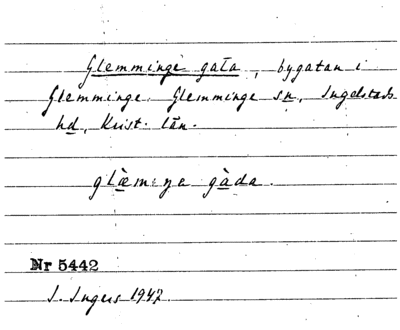 Glemminge gata, bygatan i
Glemminge. Glemminge sn, Ingelstads
hd, Krist. län.
glæ̀m:ŋa gàda.
Nr 5442
I. Ingers 1947